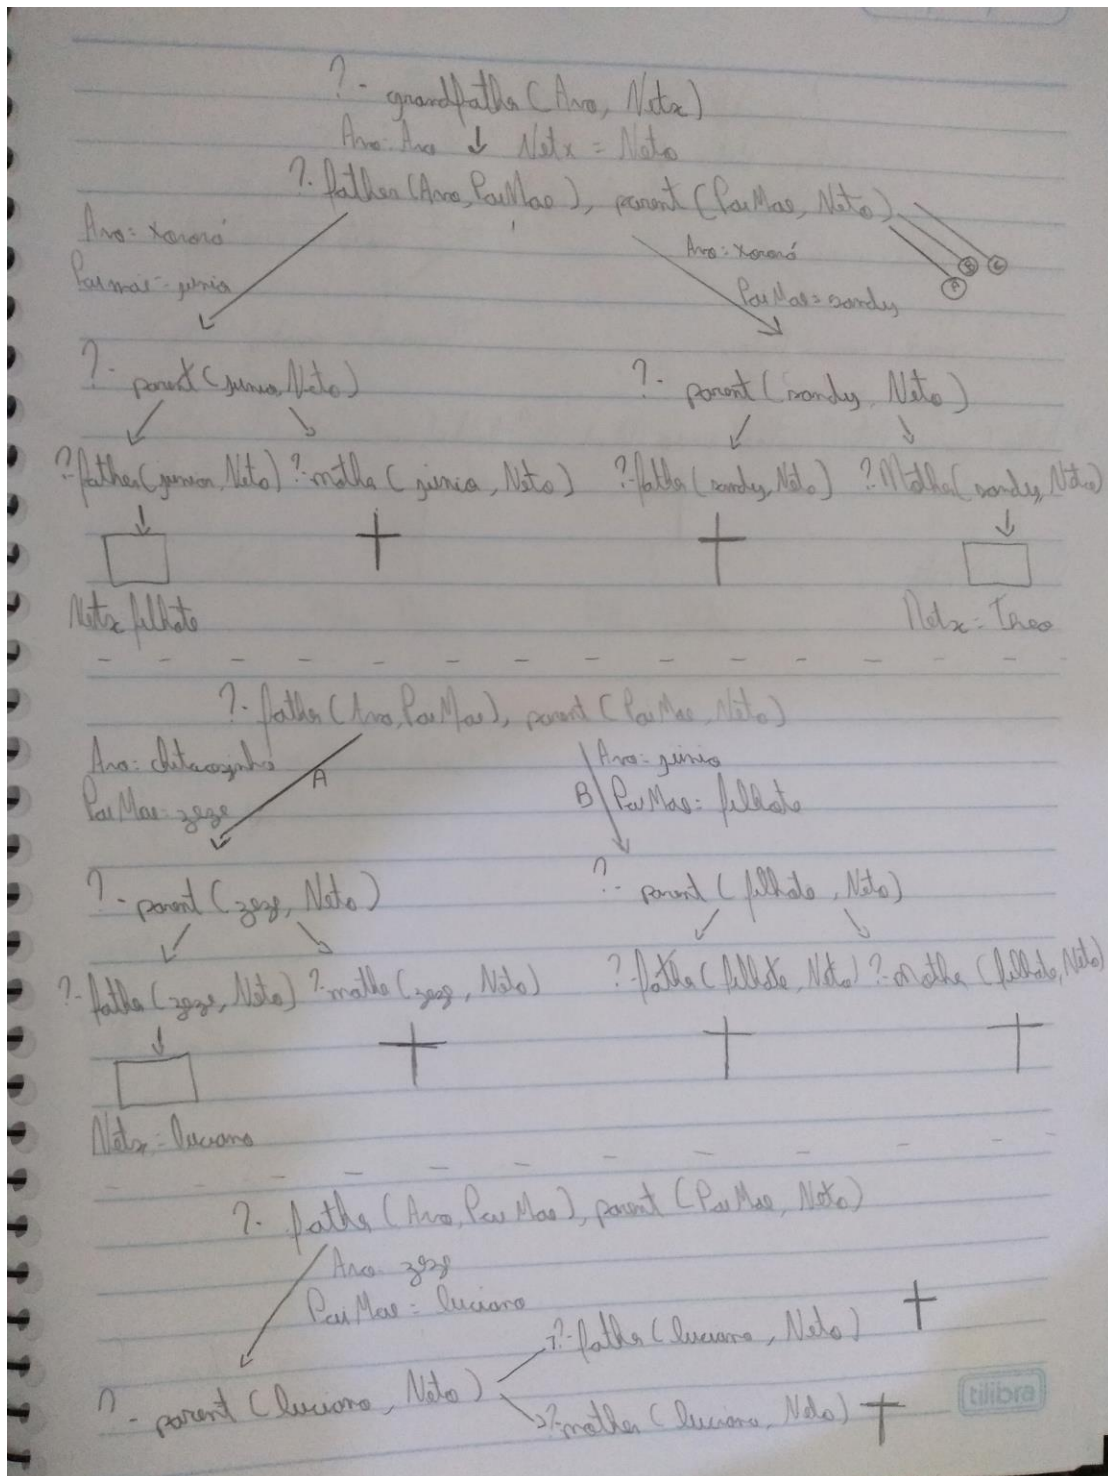 ?- grandfather (Avo, Netx)
Avo: Avo ↓ Netx = Neto
?- father (Avo, PaiMae), parent (PaiMae, Neto)
Avo = xororó
Paimae = junior
Avo = xororó
PaiMae = sandy
A B C
?- parent (junior, Neto)
?- parent (sandy, Neto)
?- father (junior, Neto) ?- mother (junior, Neto) ?- father (sandy, Neto) ?- Mother (sandy, Neto)
Netx filhote
Netx = Theo
?- father (Avo, PaiMae), parent (PaiMae, Neto)
Avo: chitaozinho
PaiMae = zeze
A
Avo: junior
B PaiMae = filhote
?- parent (zeze, Neto)
?- parent (filhote, Neto)
?- father (zeze, Neto) ?- mother (zeze, Neto) ?- father (filhote, Neto) ?- mother (filhote, Neto)
Netx = luciano
?- father (Avo, PaiMae), parent (PaiMae, Neto)
Avo zeze
PaiMae = luciano
?- father (luciano, Neto)
?- parent (luciano, Neto)
?- mother (luciano, Neto)
tilibra